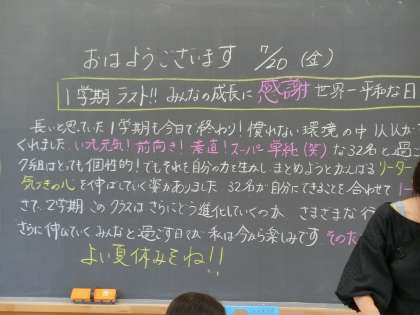 おはようございます 7/20 (金)
1学期ラスト!! みんなの成長に感謝 世界一平和な日
長いと思っていた1学期も今日で終わり! 慣れない環境の中
くれました。いつも元気! 前向き! 素直! スーパー単純(笑) な32名と過ご
7組はとっても個性的! でもそれを自分の力を生かし まとめようとがんばる リーダー
気づきの心を伸ばしていく姿がありました 32名が自分にできることを合わせて
さて、2学期 このクラスはさらにどう進化していくのか さまざまな行
さらに伸びていくみんなと過ごす日々が 私は今から楽しみです そのた
よい夏休みをね!!